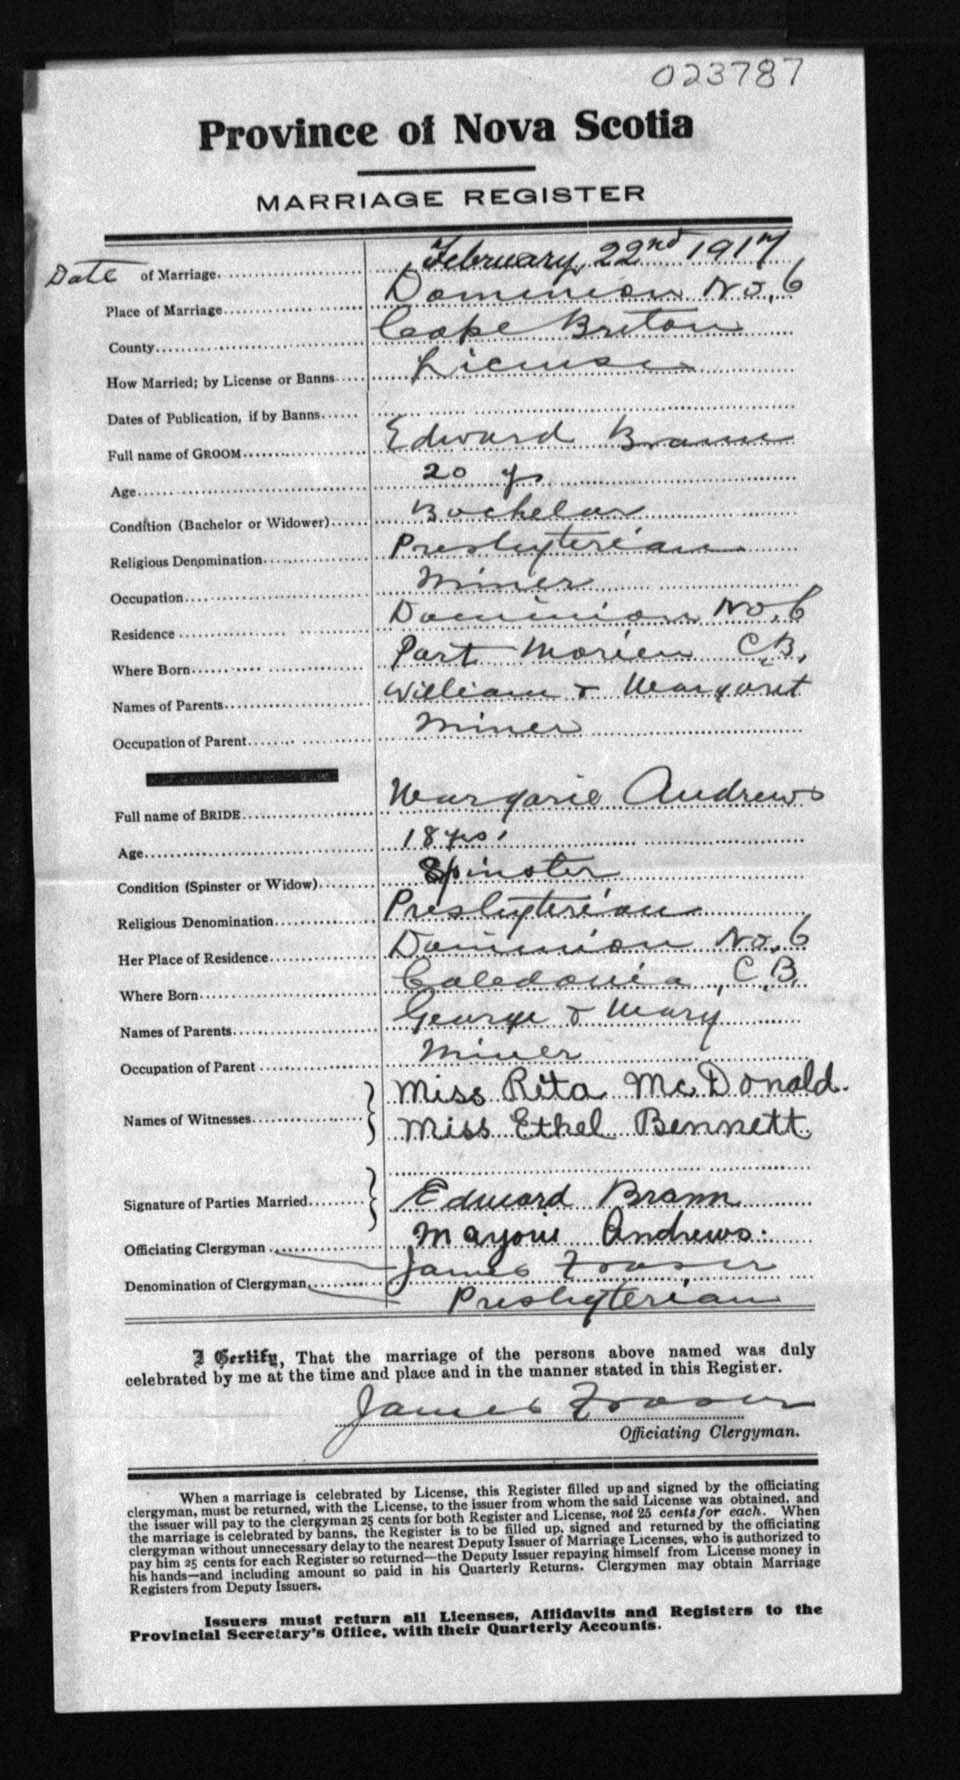 023787
Province of Nova Scotia
MARRIAGE REGISTER
Date of Marriage February 22nd 1917
Place of Marriage Dominion No. 6
County Cape Breton
How Married; by License or Banns License
Dates of Publication, if by Banns
Full name of GROOM Edward Brann
Age 20 ys
Condition (Bachelor or Widower) Bachelor
Religious Denomination Presbyterian
Occupation Miner
Residence Dominion No. 6
Where Born Port Morien C.B.
Names of Parents William & Margaret
Occupation of Parent Miner
Full name of BRIDE Margarie Andrews
Age 18 yrs.
Condition (Spinster or Widow) Spinster
Religious Denomination Presbyterian
Her Place of Residence Dominion No. 6
Where Born Caledonia, C.B.
Names of Parents George & Mary
Occupation of Parent Miner
Names of Witnesses Miss Rita McDonald.
Miss Ethel Bennett
Signature of Parties Married Edward Brann
Marjorie Andrews.
Officiating Clergyman James Fraser
Denomination of Clergyman Presbyterian
I Certify, That the marriage of the persons above named was duly
celebrated by me at the time and place and in the manner stated in this Register.
James Fraser
Officiating Clergyman.
When a marriage is celebrated by License, this Register filled up and signed by the officiating
clergyman, must be returned, with the License, to the issuer from whom the said License was obtained, and
the issuer will pay to the clergyman 25 cents for both Register and License, not 25 cents for each. When
the marriage is celebrated by banns, the Register is to be filled up, signed and returned by the officiating
clergyman without unnecessary delay to the nearest Deputy Issuer of Marriage Licenses, who is authorized to
pay him 25 cents for each Register so returned—the Deputy Issuer repaying himself from License money in
his hands—and including amount so paid in his Quarterly Returns. Clergymen may obtain Marriage
Registers from Deputy Issuers.
Issuers must return all Licenses, Affidavits and Registers to the
Provincial Secretary's Office, with their Quarterly Accounts.